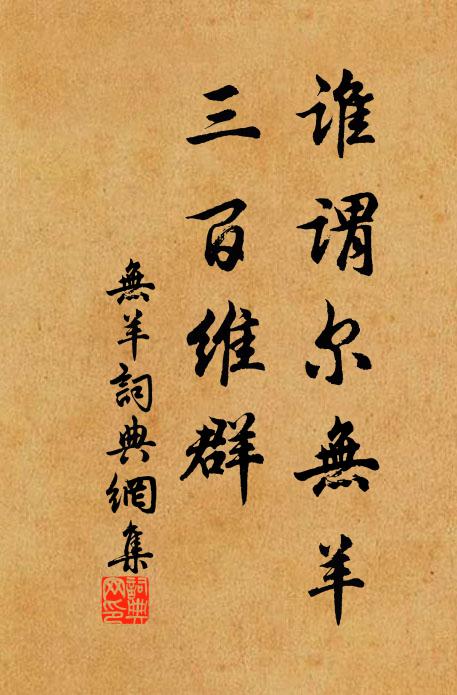 谁谓尔無羊
三百维群
無羊詞典網集
詞典网印